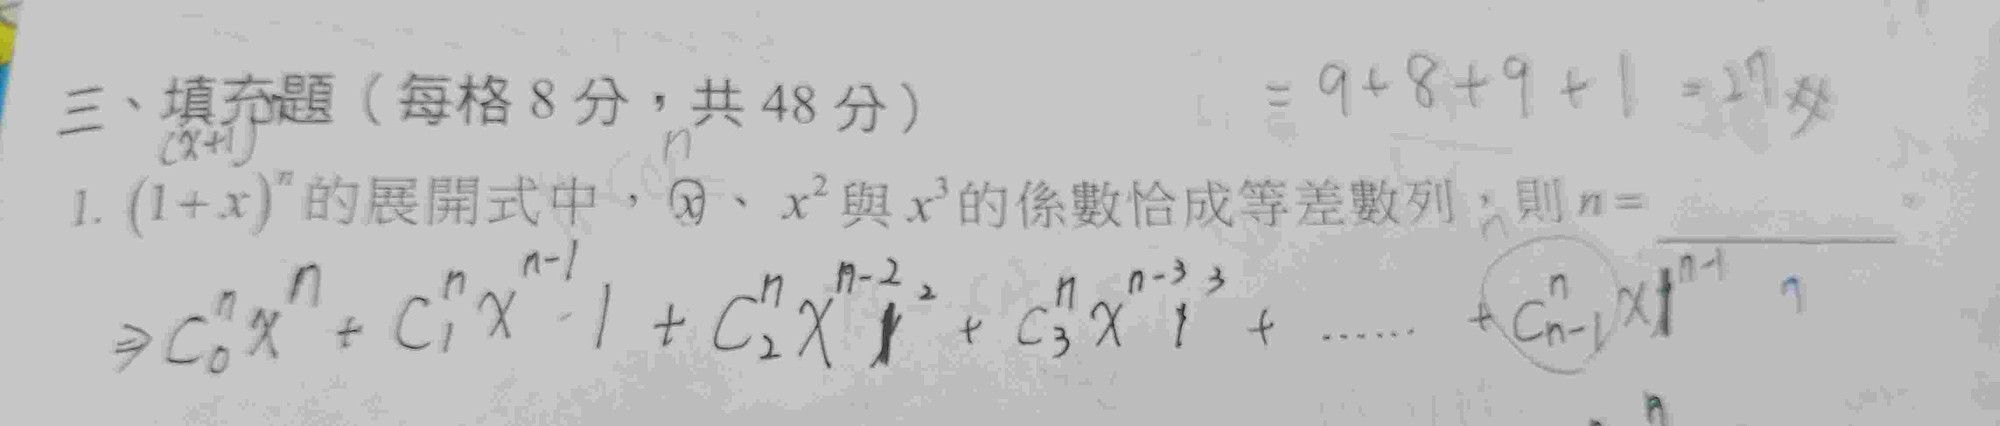 三、填充題（每格 8 分，共 48 分） = 9+8+9+1 = 27
(x+1)^n
1. (1+x)^n 的展開式中，x、x^2 與 x^3 的係數恰成等差數列，則 n = ______。
⇒ C_0^n x^n + C_1^n x^{n-1}·1 + C_2^n x^{n-2} 1^2 + C_3^n x^{n-3} 1^3 + ...... + C_{n-1}^n x 1^{n-1}
n